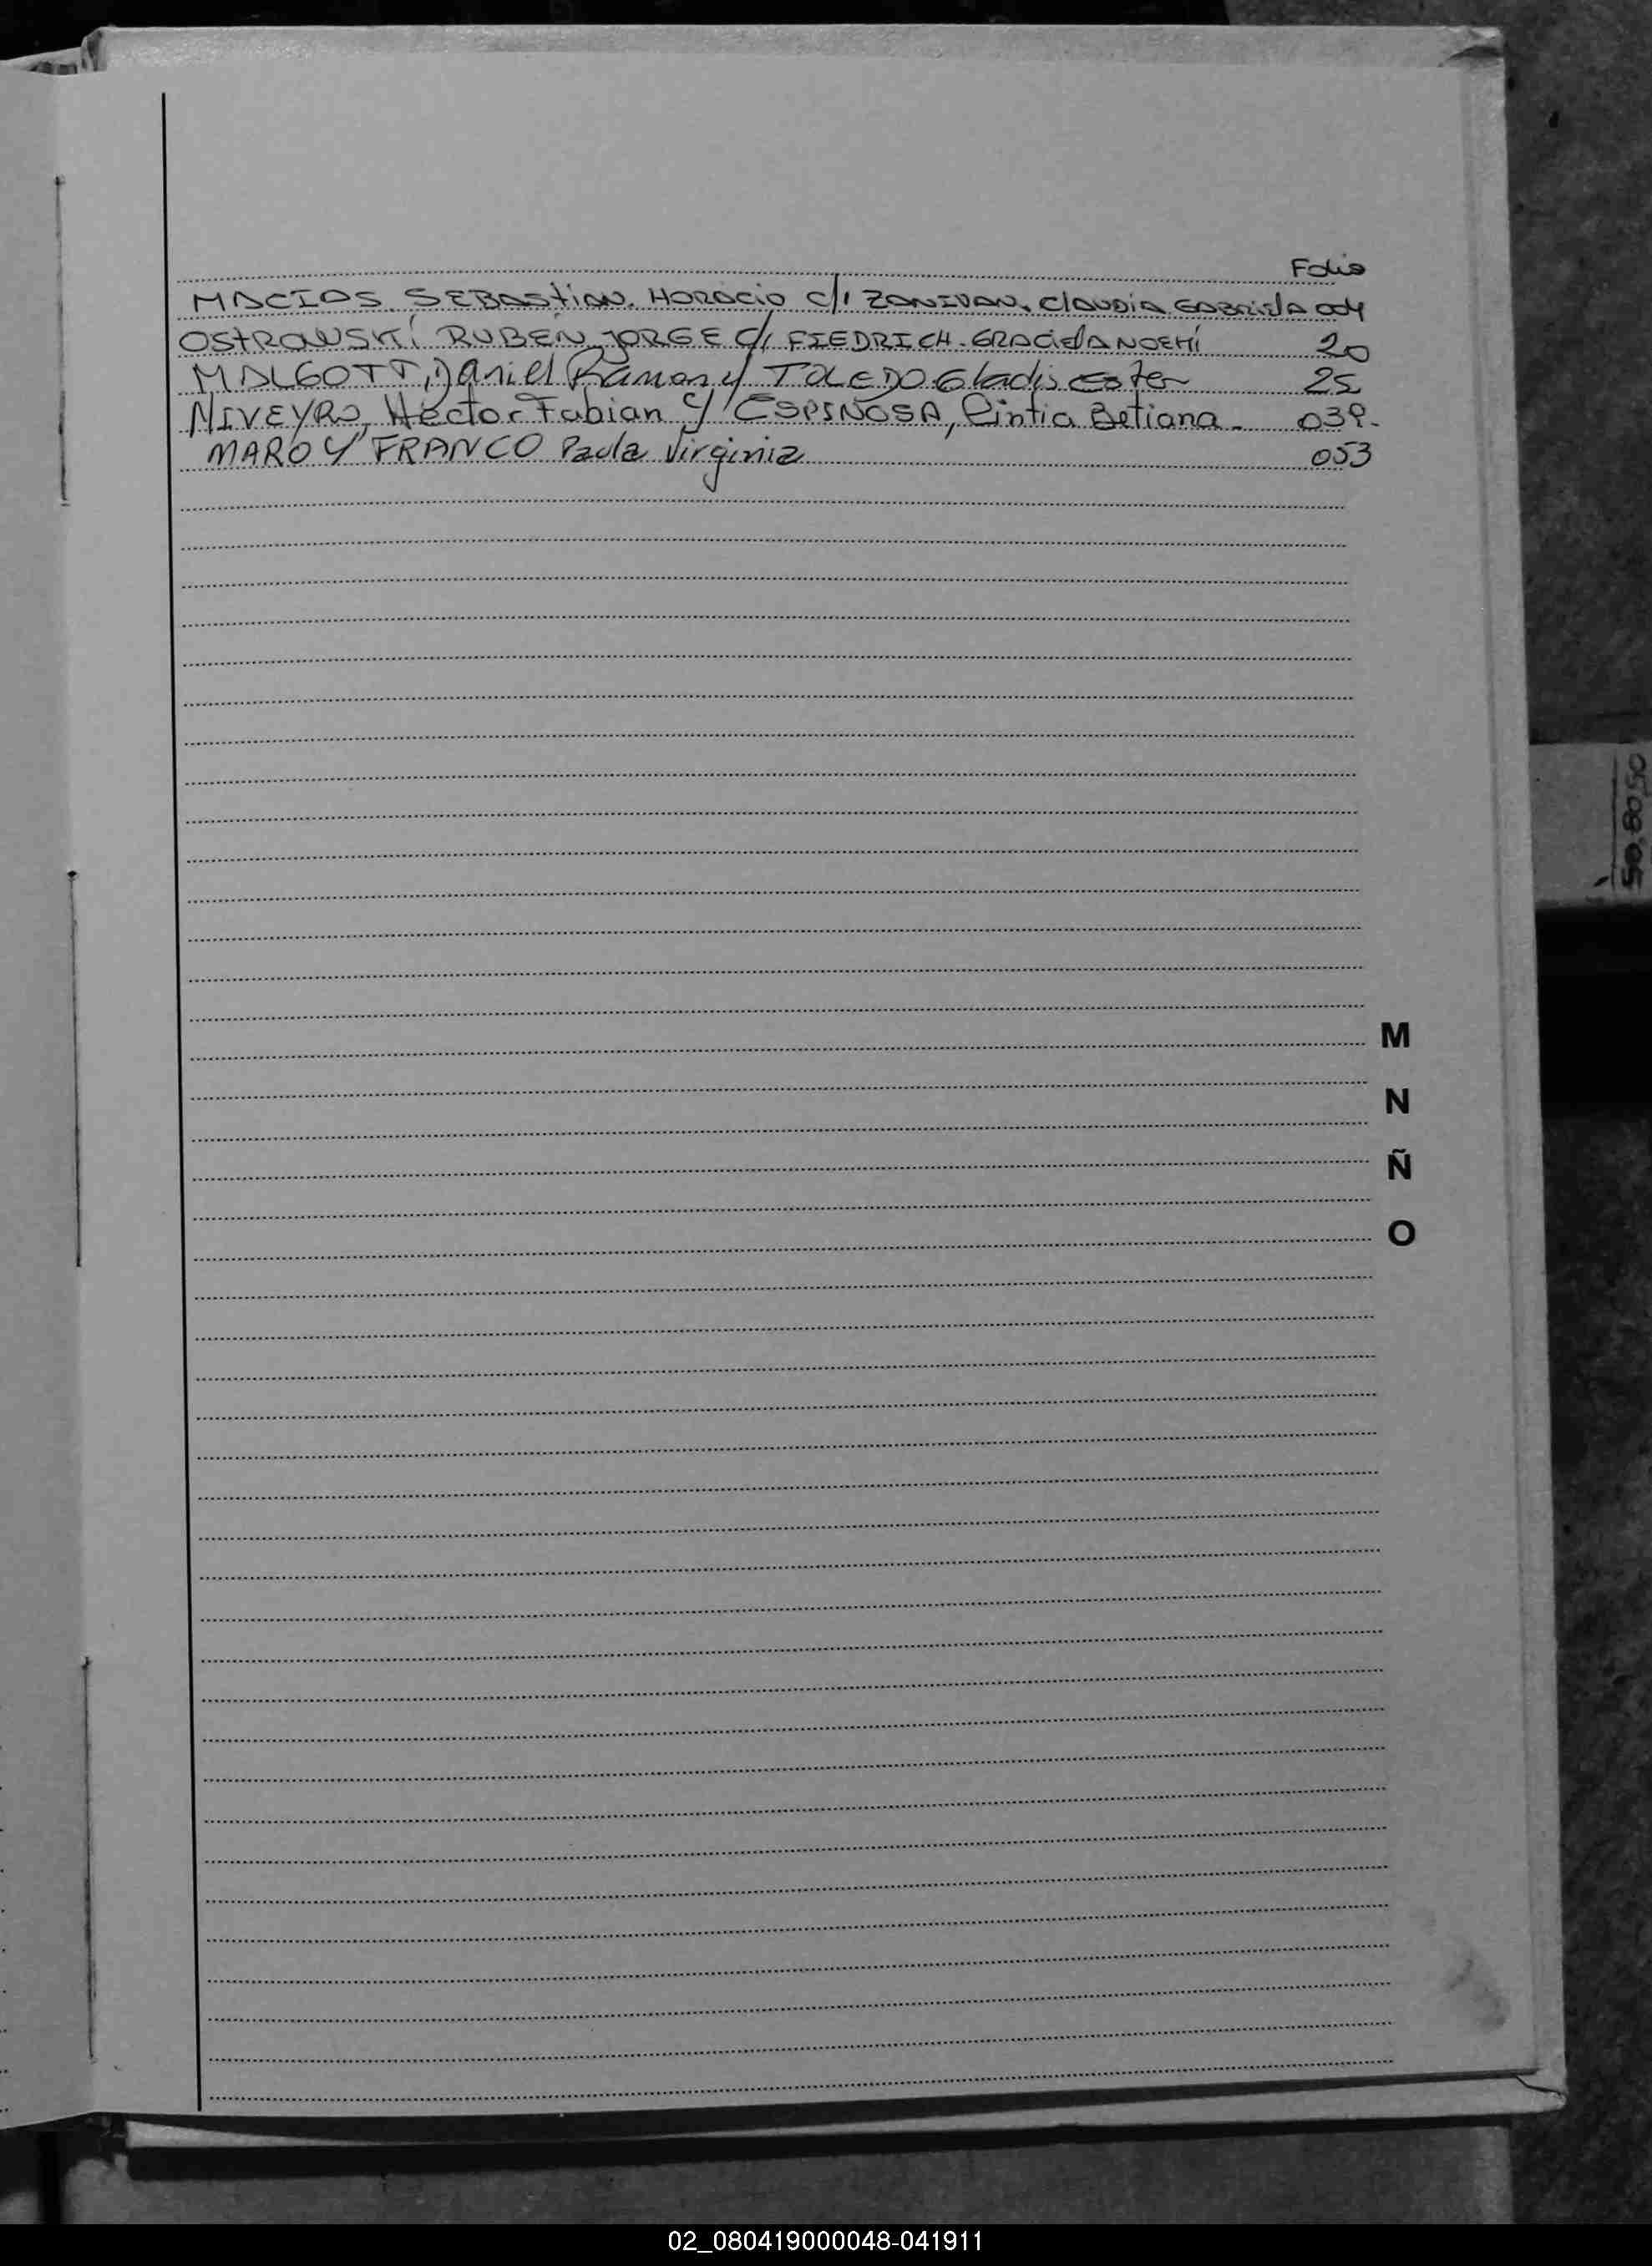 Folio
MACIAS. SEBASTIAN. HORACIO c/ ZANIVAN, CLAUDIA GABRIELA 004
OSTROWSKI RUBEN JORGE c/ FIEDRICH. GRACIELA NOEMÍ 20
MALGOTT, Daniel Ramon y TOLEDO Gladis Ester 25
NIVEYRO, Hector Fabian y ESPINOSA, Cintia Betiana. 039.
MARO Y FRANCO Paula Virginia 053
M
N
Ñ
O
02_080419000048-041911